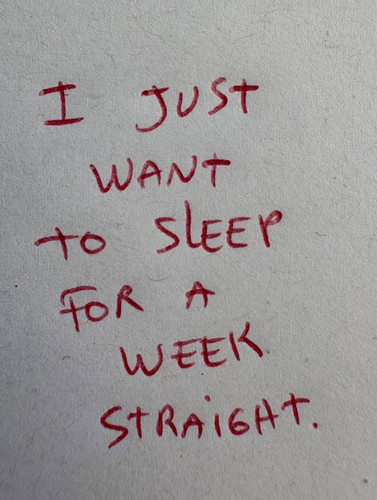 I JUST
WANT
TO SLEEP
FOR A
WEEK
STRAIGHT.